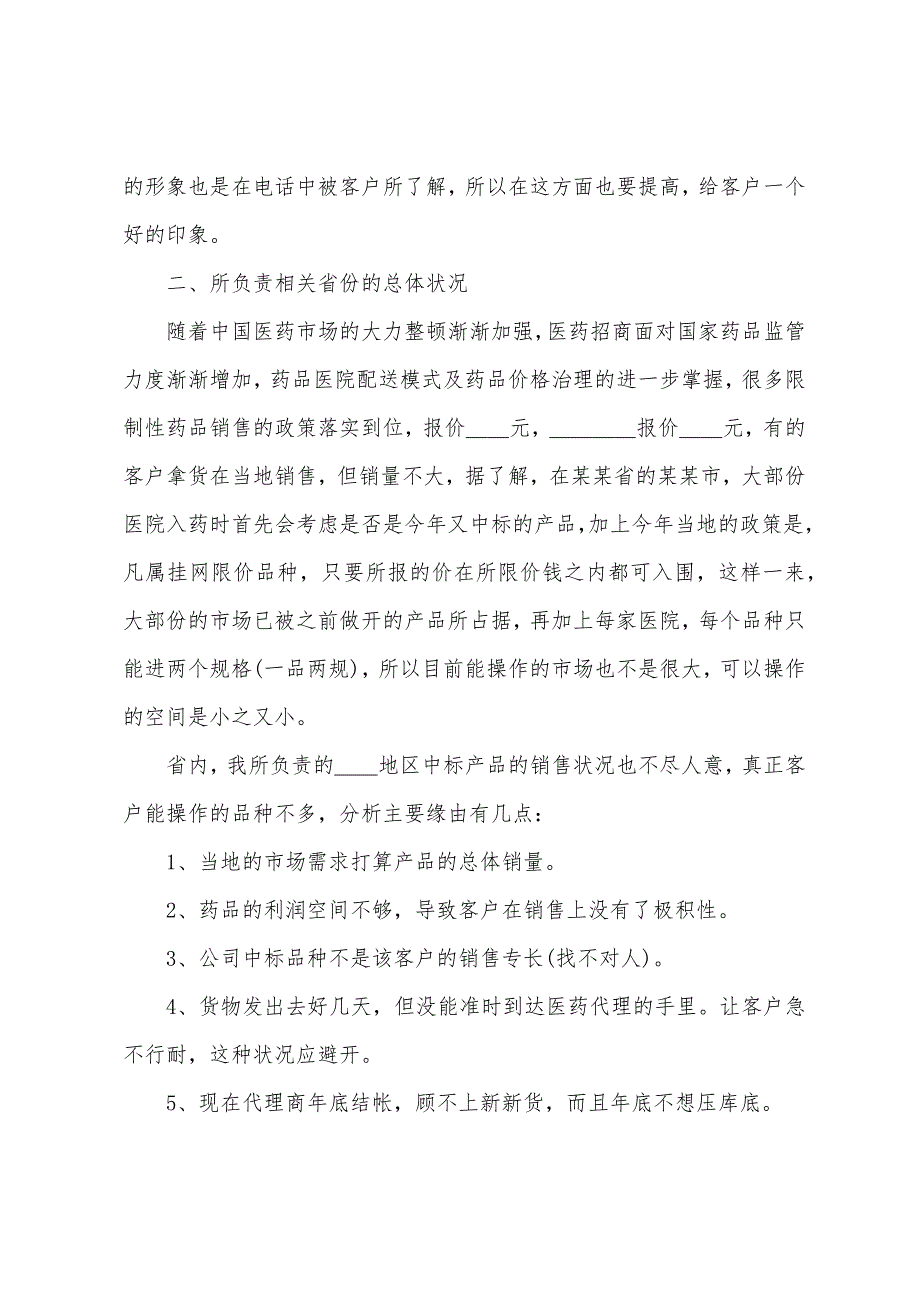 的形象也是在电话中被客户所了解，所以在这方面也要提高，给客户一个
好的印象。
二、所负责相关省份的总体状况
随着中国医药市场的大力整顿渐渐加强，医药招商面对国家药品监管
力度渐渐增加，药品医院配送模式及药品价格治理的进一步掌握，很多限
制性药品销售的政策落实到位，报价____元，________报价____元，有的
客户拿货在当地销售，但销量不大，据了解，在某某省的某某市，大部份
医院入药时首先会考虑是否是今年又中标的产品，加上今年当地的政策是，
凡属挂网限价品种，只要所报的价在所限价钱之内都可入围，这样一来，
大部份的市场已被之前做开的产品所占据，再加上每家医院，每个品种只
能进两个规格(一品两规)，所以目前能操作的市场也不是很大，可以操作
的空间是小之又小。
省内，我所负责的____地区中标产品的销售状况也不尽人意，真正客
户能操作的品种不多，分析主要缘由有几点：
1、当地的市场需求打算产品的总体销量。
2、药品的利润空间不够，导致客户在销售上没有了极积性。
3、公司中标品种不是该客户的销售专长(找不对人)。
4、货物发出去好几天，但没能准时到达医药代理的手里。让客户急
不行耐，这种状况应避开。
5、现在代理商年底结帐，顾不上新新货，而且年底不想压库底。